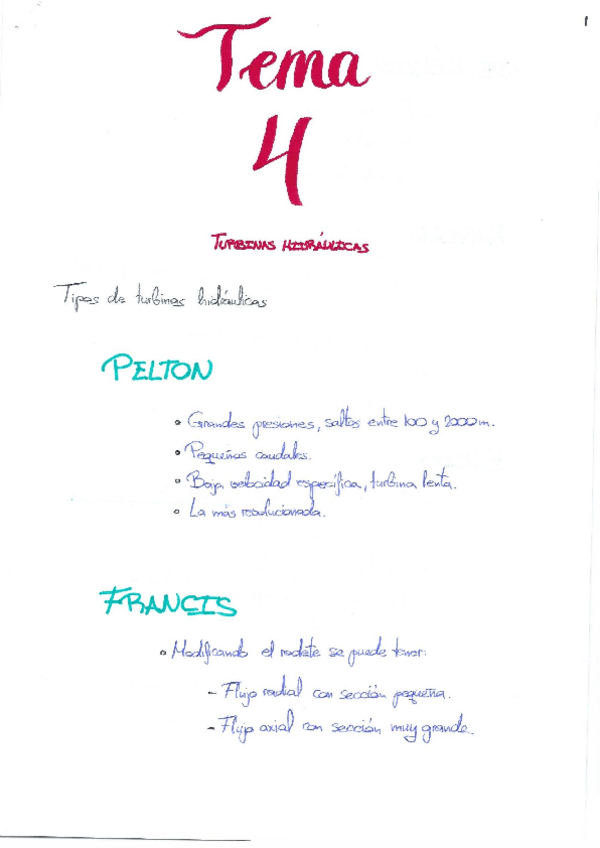 1
Tema
4
TURBINAS HIDRÁULICAS
Tipos de turbinas hidráulicas
PELTON
• Grandes presiones, saltos entre 100 y 2000 m.
• Pequeños caudales.
• Baja velocidad específica, turbina lenta.
• La más revolucionada.
FRANCIS
• Modificando el rodete se puede tener:
- Flujo radial con sección pequeña.
- Flujo axial con sección muy grande.